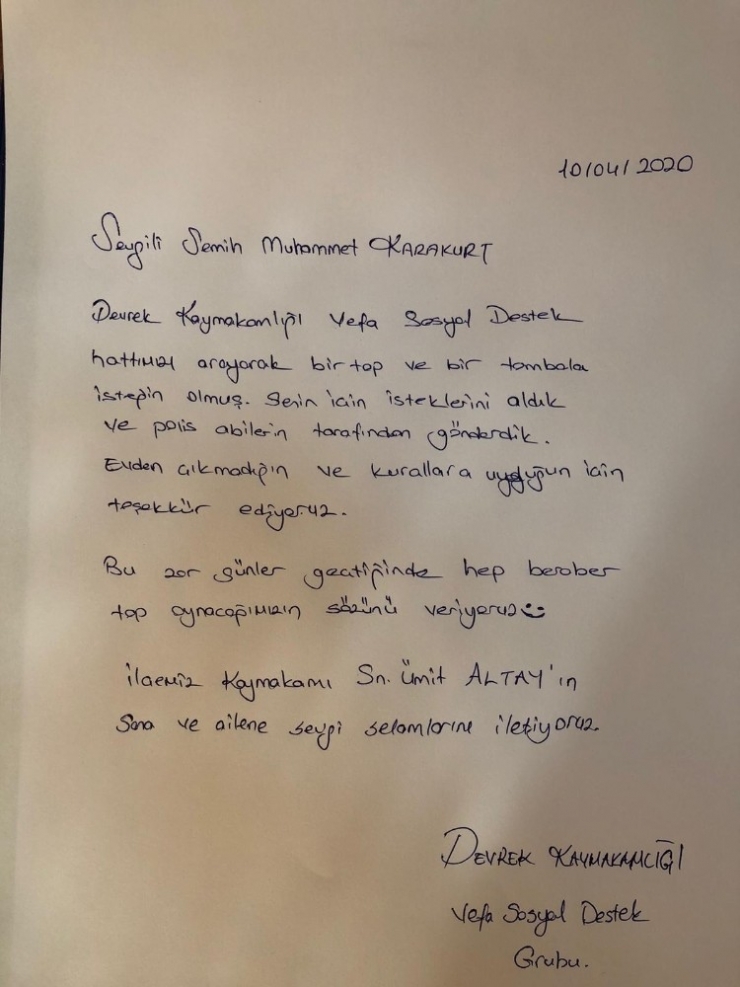 10/04/2020
Sevgili Semih Muhammet KARAKURT
Devrek Kaymakamlığı Vefa Sosyal Destek
hattımızı arayarak bir top ve bir tombala
isteğin olmuş. Senin için isteklerini aldık
ve polis abilerin tarafından gönderdik.
Evden çıkmadığın ve kurallara uyduğun için
teşekkür ediyoruz.
Bu zor günler geçtiğinde hep beraber
top oynacağımızın sözünü veriyoruz☺
ilçemiz Kaymakamı Sn. Ümit ALTAY'ın
Sana ve ailene sevgi selamlarını iletiyoruz.
DEVREK KAYMAKAMLIĞI
Vefa Sosyal Destek
Grubu.